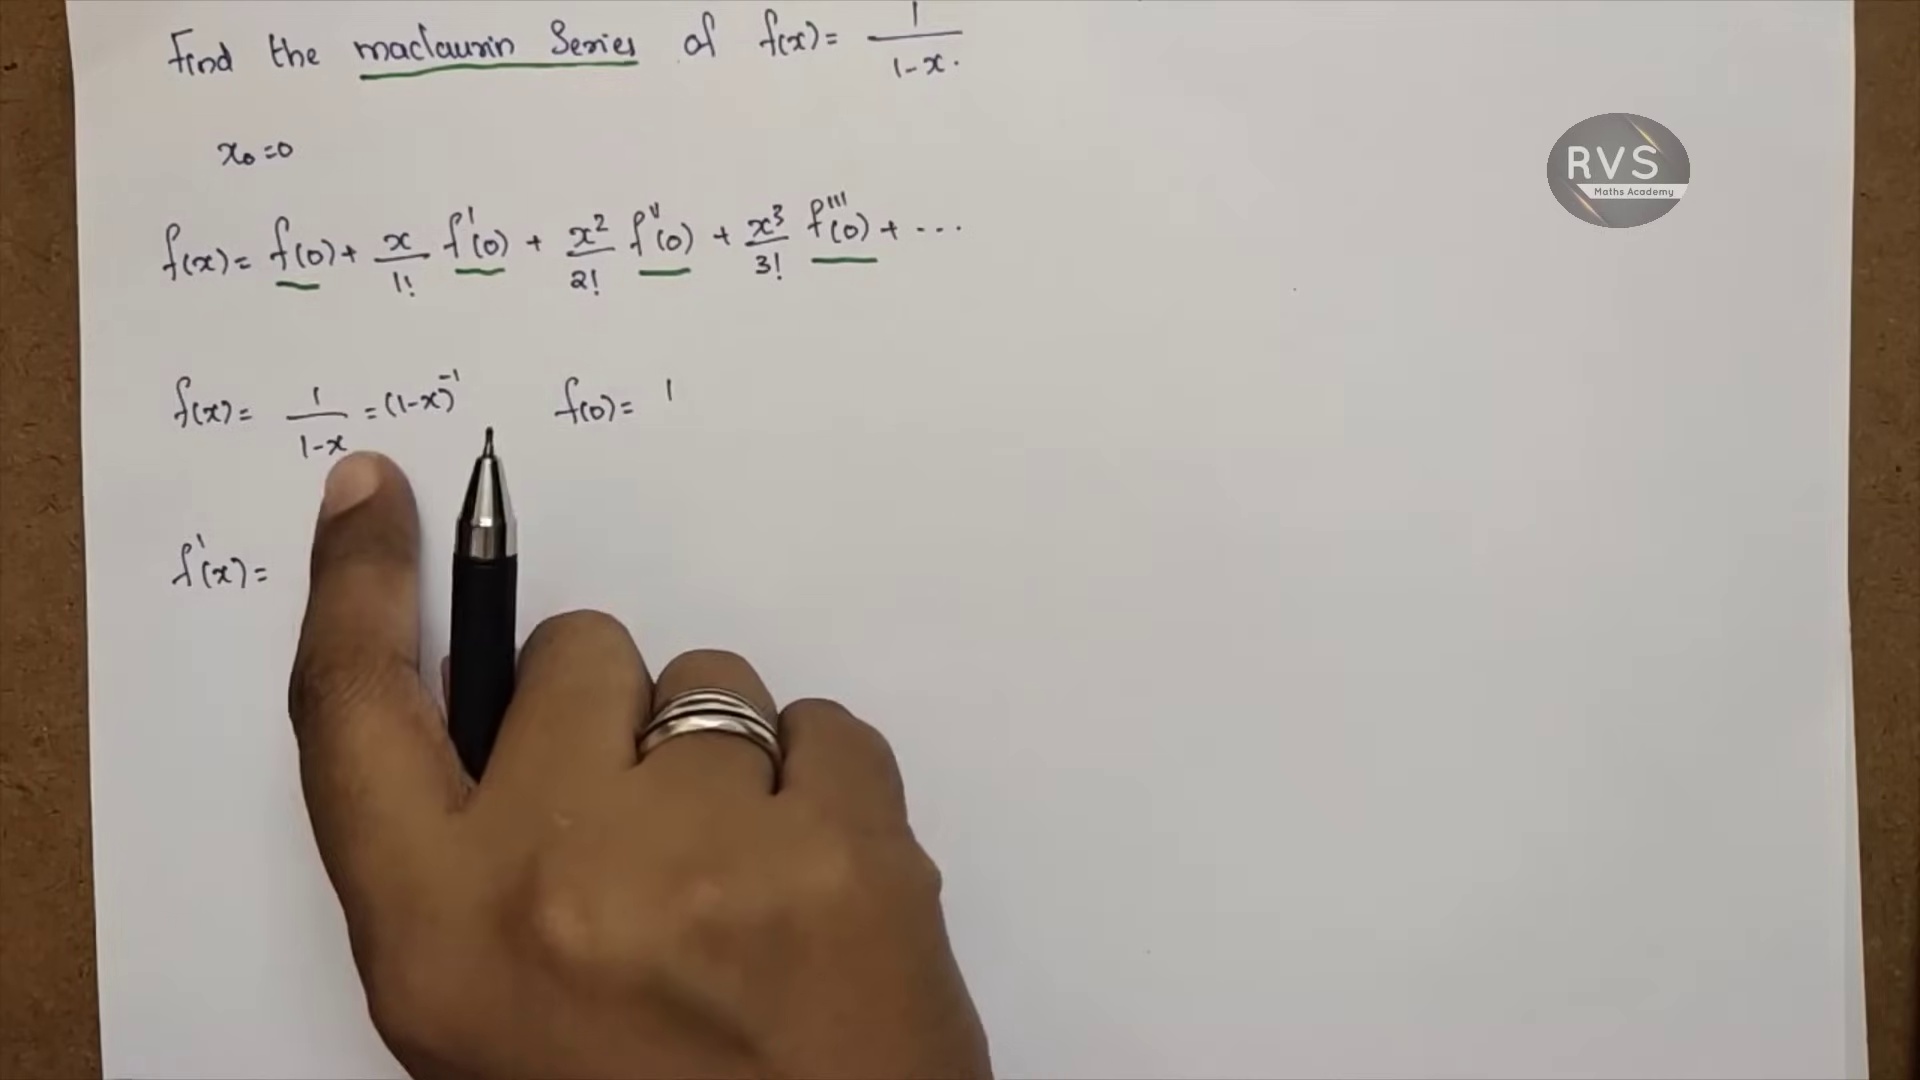 Find the maclaurin Series of f(x) = 1/(1-x).
RVS
Maths Academy
x₀ = 0
f(x) = f(0) + x/1! f'(0) + x²/2! f''(0) + x³/3! f'''(0) + ...
f(x) = 1/(1-x) = (1-x)⁻¹ f(0) = 1
f'(x) =